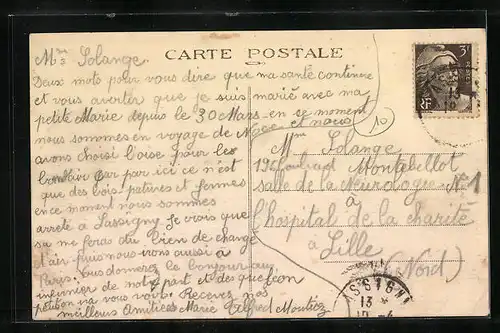 Mme Solange.
CARTE POSTALE
Deux mots pour vous dire que ma santé continue
et vous aventer que je suis marié avec ma
petite Marie depuis le 30 Mars en se moment
nous sommes en voyage de Noce et nous
avons choisi l'oise pour les
car par ici ce n'est
que des bois patures et fermes
en ce moment nous sommes
arrete à Lassigny Je crois que
sa me feras du bien de change
d'air puis nous irons aussi à
Paris. Vous donnerez le bonjour aux
infirmier de notre part et des que
vous voir. Recevez nos
meilleurs Amitiées Marie Alfred
10
Mme Solange
Montebellot
salle de la Neurologie N° 1
à
l'hospital de la charité
à Lille
(Nord)
3F
RF
13